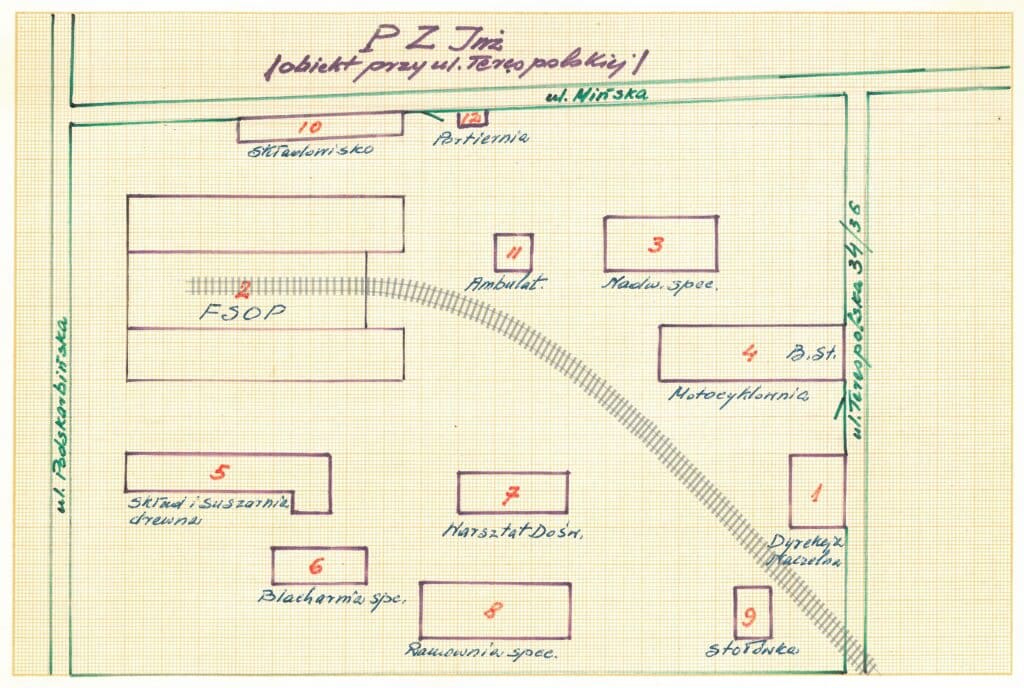 P Z Inż
/obiekt przy ul. Terespolskiej/
ul. Mińska
10
Składowisko
12
Portiernia
ul. Podskarbińska
ul. Terespolska 34/36
2
FSOP
11
Ambulat.
3
Nadw. spec.
4
B. St.
Motocyklownia
5
Skład i suszarnia
drewna
7
Warsztat Dośw.
1
Dyrekcja
Naczelna
6
Blacharnia spec.
8
Ramownia spec.
9
Stołówka